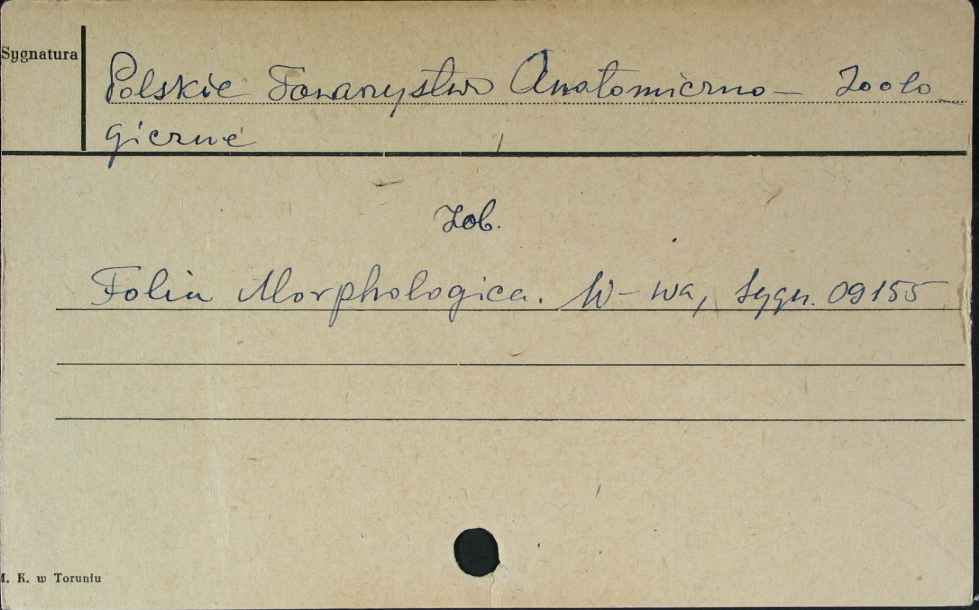 Sygnatura
Polskie Towarzystwo Anatomiczno - Zoolo
giczne
Zob.
Folia Morphologica. W-wa, Sygn. 09155
M. K. w Toruniu